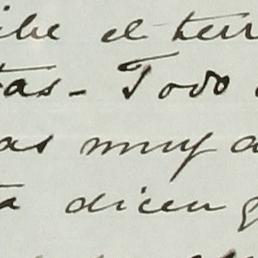 ibe el terr
tas - Todo
as muy a
a dicen g